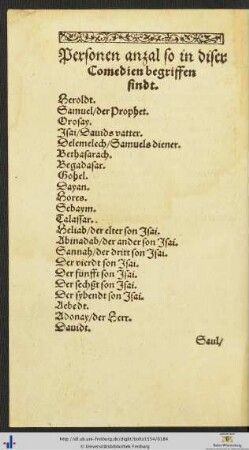 Personen anzal so in diser
Comedien begriffen
sindt.
Heroldt.
Samuel/der Prophet.
Orosay.
Isai/Dauids vatter.
Delemelech/Samuels diener.
Bethasarach.
Begadasar.
Gohel.
Dayan.
Hores.
Sebaym.
Calassar.
Heliab/der elter son Isai.
Abinadab/der ander son Isai.
Sannah/der dritt son Isai.
Der vierdt son Isai.
Der fünfft son Isai.
Der sechßt son Isai.
Der sybendt son Isai.
Aebedt.
Adonay/der Herr.
Dauidt.
Saul/
http://dl.ub.uni-freiburg.de/diglit/boltz1554/0184
© Universitätsbibliothek Freiburg